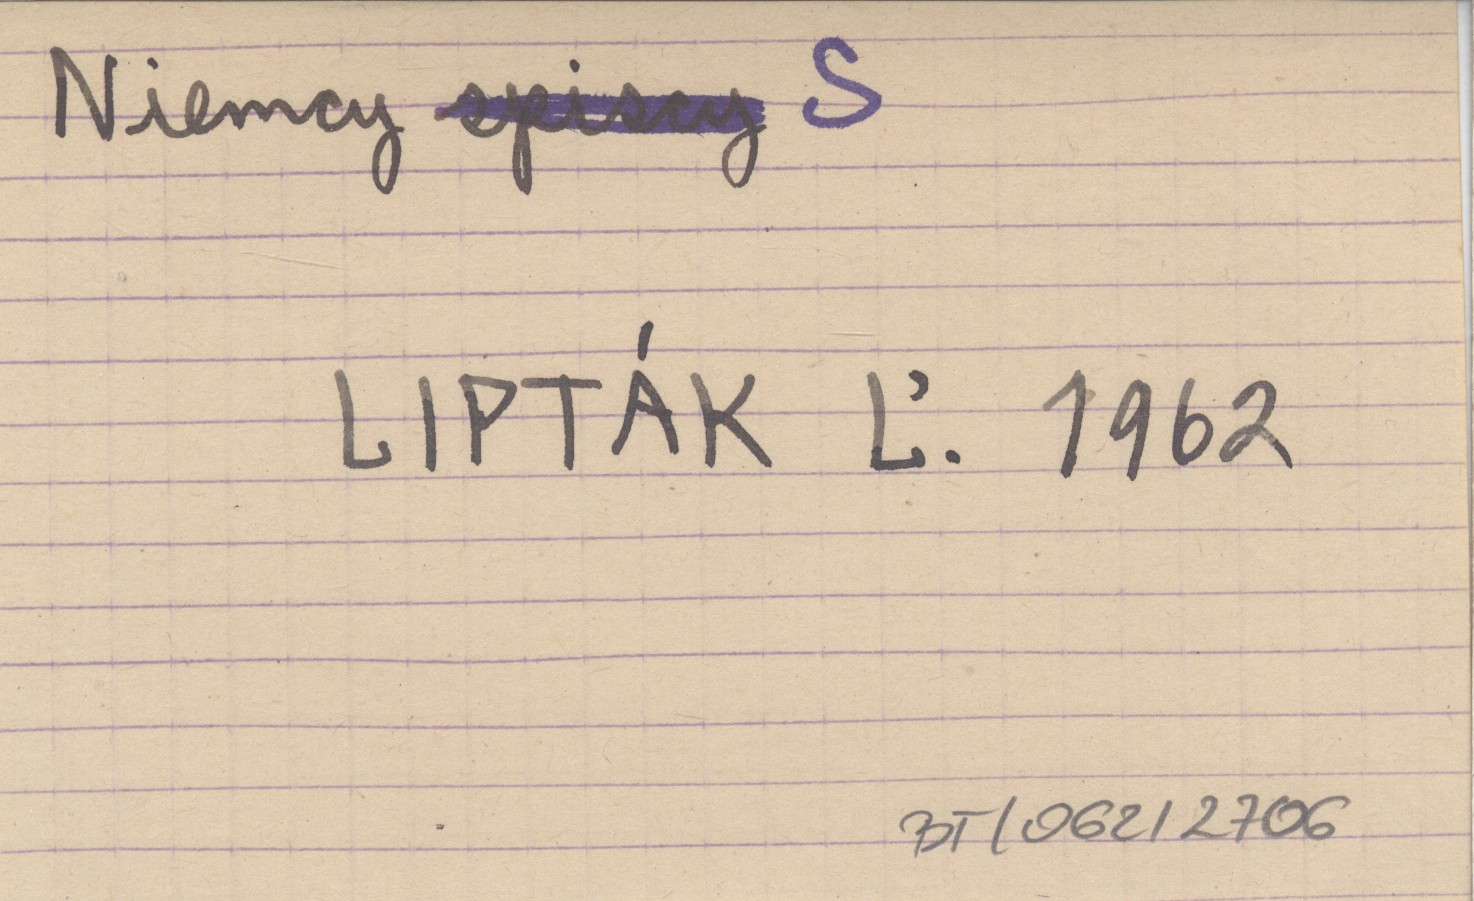 Niemcy spiscy S
LIPTÁK Ľ. 1962
BT/062/2706